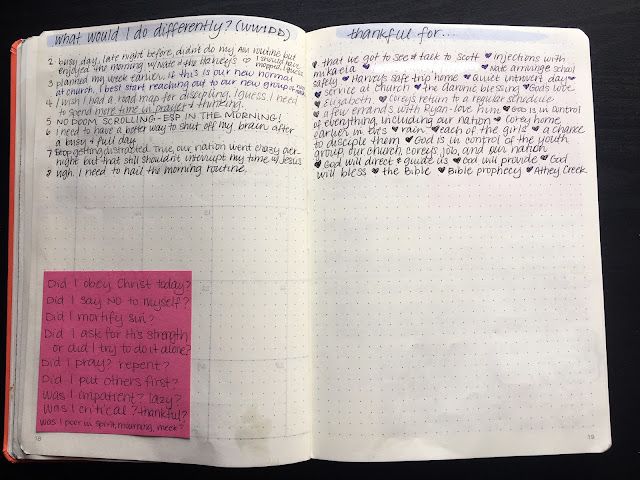 what would I do differently? (WWIDD)
2 busy day, late night before, didn't do my AM routine but
enjoyed the morning w/ Nate & the Harvey's ♡ I should have mopped, I guess.
3 planned my week earlier. If this is our new normal
at church, I best start reaching out to our new group at
4 I wish I had a road map for discipling. I guess I need
to spend more time in prayer & thinking.
5 NO DOOM SCROLLING - ESP IN THE MORNING!
6 I need to have a better way to shut off my brain after
a busy & full day
7 Stop getting distracted. True, our nation went crazy last
night but that still shouldn't interrupt my time w/ Jesus
8 ugh. I need to nail the morning routine.
Did I obey Christ today?
Did I say NO to myself?
Did I mortify sin?
Did I ask for His strength
or did I try to do it alone?
Did I pray? repent?
Did I put others first?
Was I impatient? lazy?
Was I critical? thankful?
Was I poor in spirit, mourning, meek?
18
thankful for...
♥ that we got to see & talk to Scott ♥ injections with
mikaela ♥ Nate arriving @ school
safely ♥ Harvey's safe trip home ♥ Quiet introvert day
♥ service at church ♥ the Aaronic blessing ♥ God's Word
♥ Elizabeth ♥ Corey's return to a regular schedule
♥ a few errands with Ryan - love him ♥ God is in control
of everything, including our nation ♥ Corey home
earlier in eve's ♥ rain ♥ each of the girls ♥ a chance
to disciple them ♥ God is in control of the youth
group, our church, Corey's job, and our nation
♥ God will direct & guide us ♥ God will provide ♥ God
will bless ♥ the Bible ♥ Bible prophecy ♥ Athey Creek
19